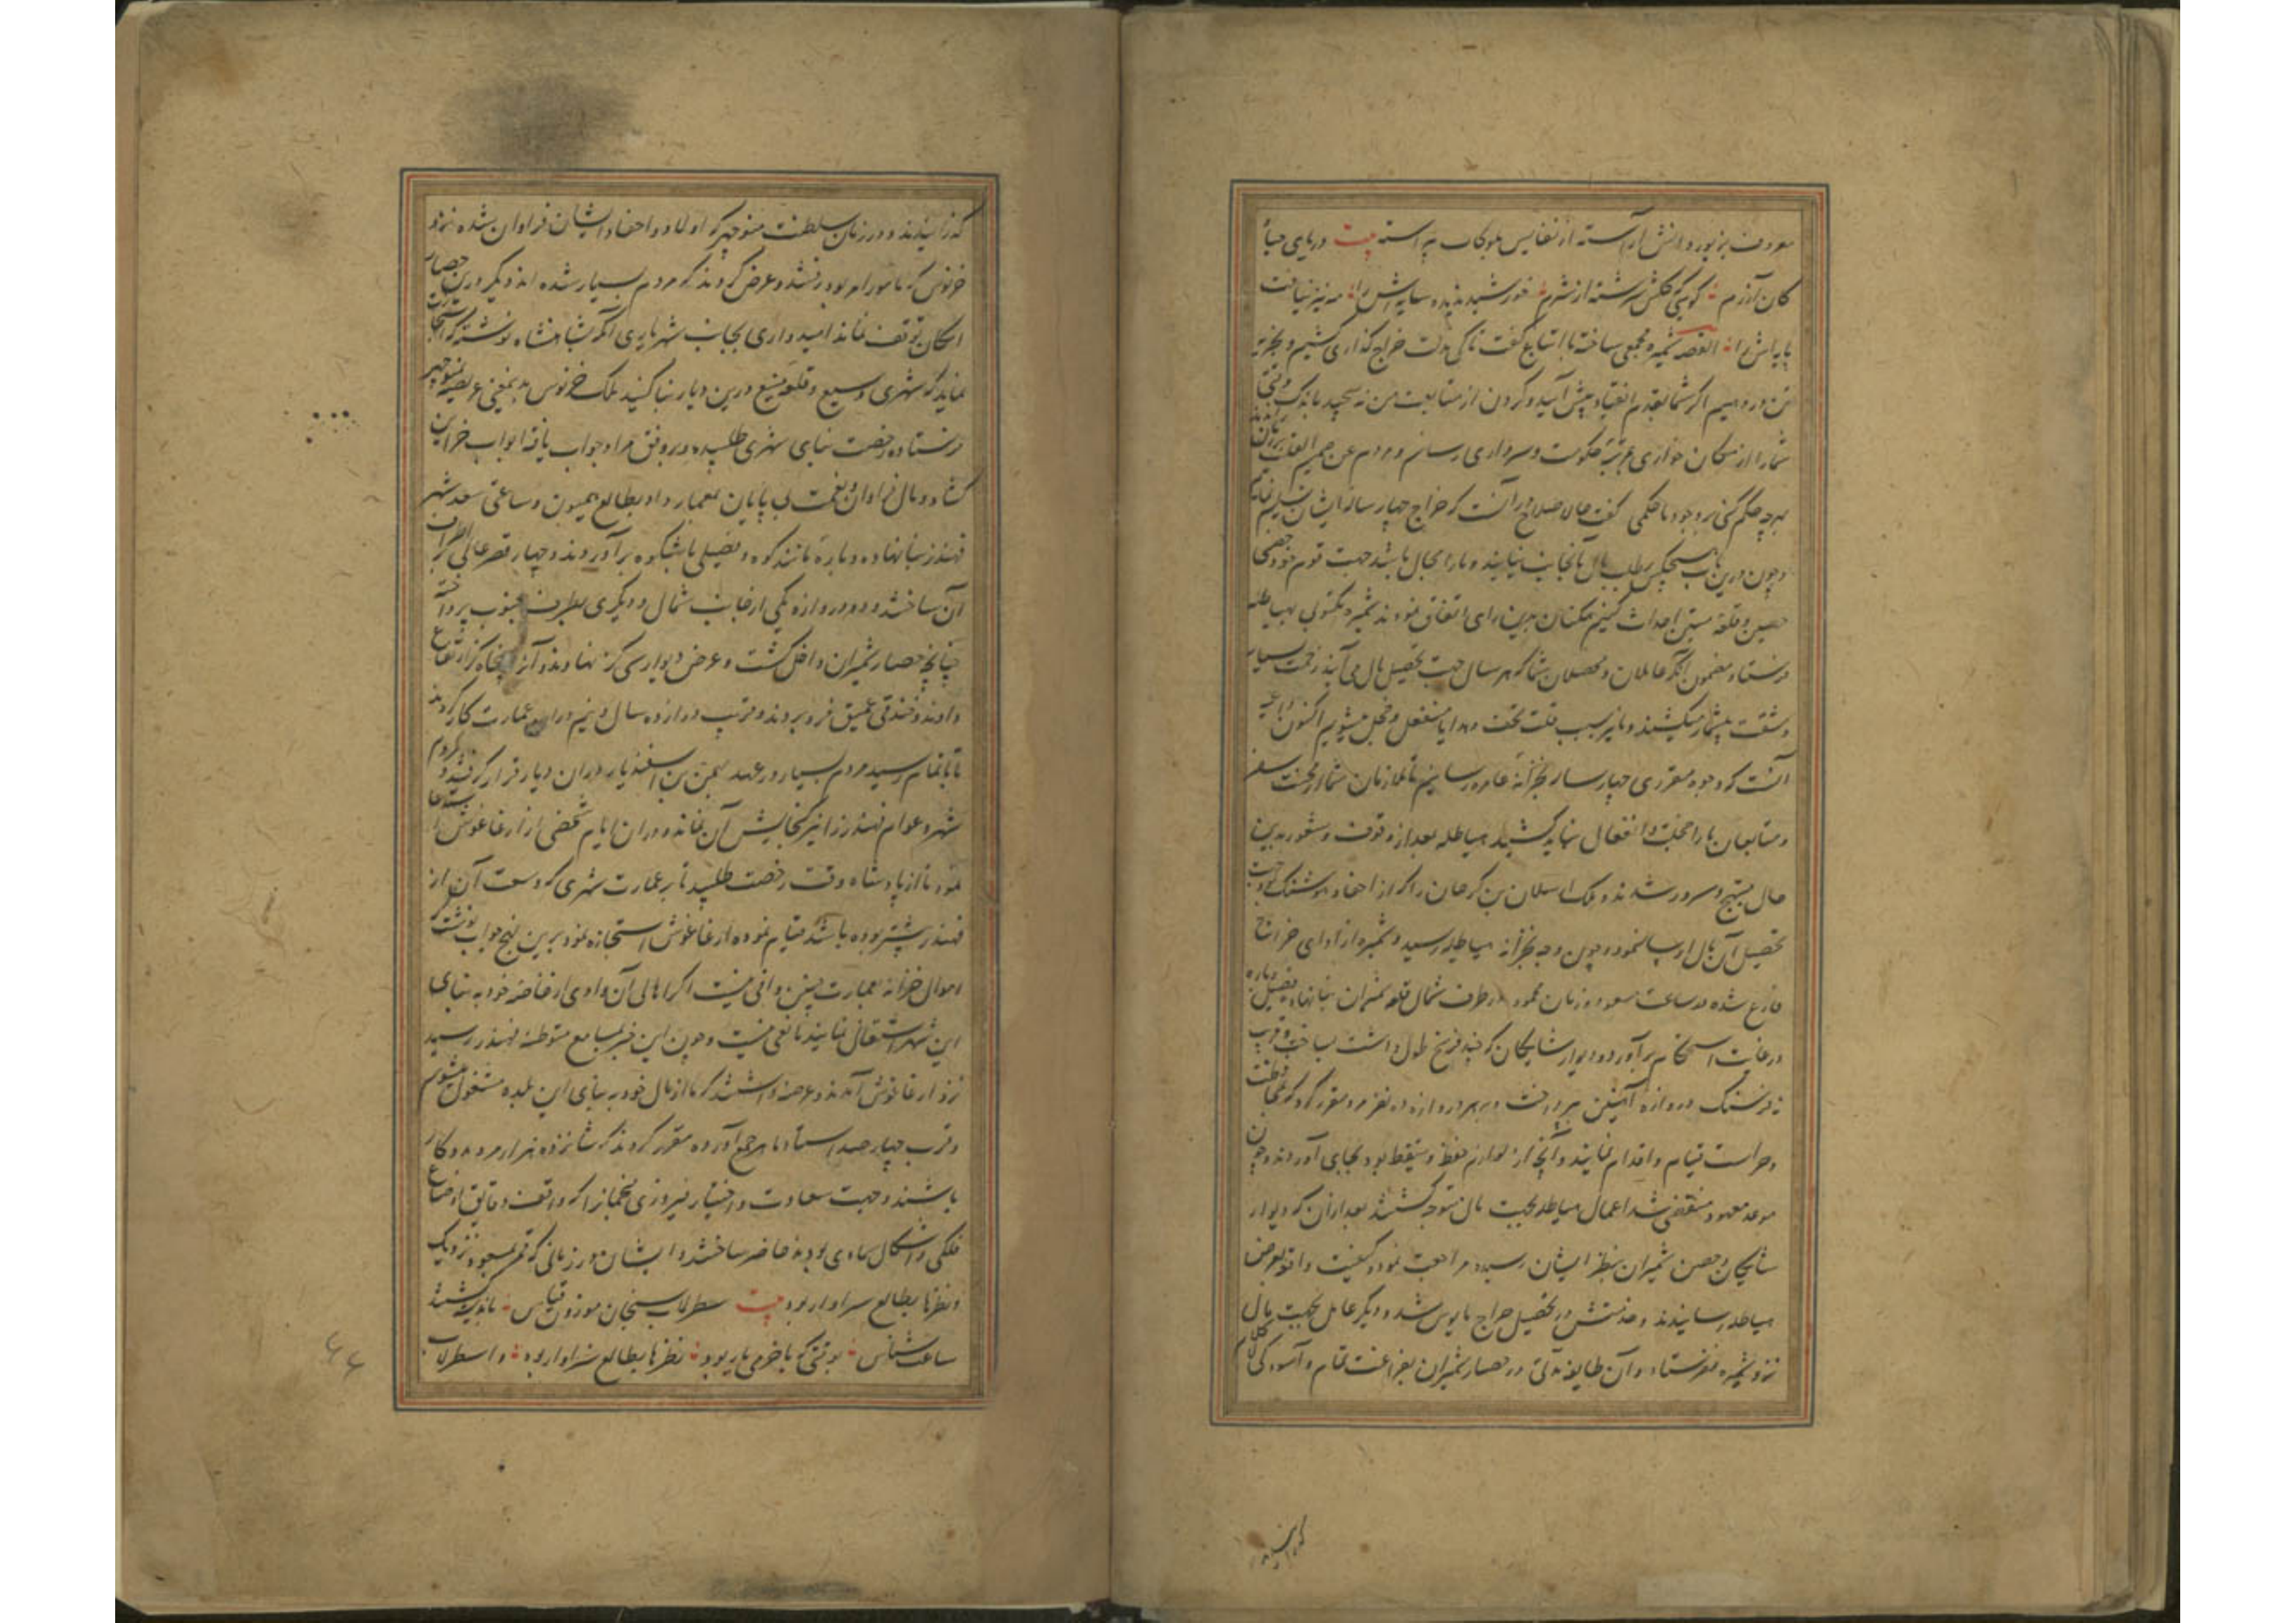 معروف بزیور دانش آراسته از نفایس ملوکانه پیراسته بیت دریای حیا و
کان آزرم گویی گلش سرشته از شرم خورشید ندیده سایه‌اش را مه نیز نیافت
پایه‌اش را القصه شمیره مجمعی ساخته با اتباع گفت تا کی مدت خراج گذاری کشیم و بجزیه
تن در دهیم اگر شما بقدم انقیاد پیش آیید و گردن از متابعت من نه پیچید باندک وقتی
شما را از مکان خواری بمرتبه حکومت و سرداری رسانم مردم عن صمیم القلب
هر چه حکم کنی بر وجود ما حکمی گفت حالا صلاح در آنست که خراج چهار ساله ایشان تسلیم نماییم
و چون درین باب هیچکس بطلب مال بانجانب نیایند و ما را مجال باشد جهت قوم خود حصنی
حصین و قلعه متین احداث کنیم همکنان بدین رای اتفاق نمودند شمیره مکتوبی بهیاطله
فرستاد مضمون آنکه عاملان و محصلان شما که هر سال جهت تحصیل مال می آیند زحمت بسیار
و مشقت بیشمار میکشند و ما نیز بسبب قلت تحف و هدایا منفعل و خجل میشویم اکنون داعیه
آنست که وجوه مقرری چهار ساله بخزانه عامره رسانیم تا ملازمان شما را محنت سفر
و متابعان ما را خجلت و انفعال نباید کشید هیاطله بعد از وقوف و شعور بدین
حال مبتهج و مسرور شدند و ملک ارسلان بن کرجان را که از احفاد هوشنگ بود جهت
تحصیل آن مال ارسال نمود و چون وجه بخزانه هیاطله رسید و شمیره از ادای خراج
فارغ شده در ساعت مسعود و زمان محمود در طرف شمال قلعه شمیران بنا نهاد و فصیل و باره
در غایت استحکام برآورد و دیوار شایگان که چند فرسخ طول داشت بساخت و قریب
نه فرسنگ دروازه آهنین بپرداخت و بهر دروازه ده نفر مرد مقرر کرد که بمحافظت
و حراست قیام و اقدام نمایند و آنچه از لوازم حفظ و تیقظ بود بجای آوردند و چون
موعد معهود منقضی شد اعمال هیاطله بجهت مال متوجه گشتند بعد از آن که دیوار
شایگان و حصن شمیران بنظر ایشان رسید مراجعت نموده کیفیت واقعه بعرض
هیاطله رسانیدند و خدمتش در تحصیل خراج مایوس شد و دیگر عامل بجهت مال
نزد شمیره نفرستاد و آن طایفه مدتی در حصار شمیران بفراغت تمام و آسودگی لاکلام
گذرانیدند
گذرانیدند و در زمان سلطنت منوچهر که اولاد و احفاد ایشان فراوان شده نزد
خرنوش که مامور امر بود رفتند و عرض کردند که مردم بسیار شده اند و دیگر درین حصار
امکان توقف نماند امیدواری بجانب شهریاری آنکه بشاهنشاه نوشته که اشارت
نماید که شهری وسیع و قلعه منیع درین دیار بنا کنند ملک خرنوش بدین معنی عریضه بمنوچهر
فرستاده رخصت بنای شهری طلبیده و بر وفق مراد جواب یافته ابواب خزاین
گشاد و مال فراوان و نعمت بی پایان بمعمار داد بطالع همیون و ساعتی سعد شهر
قهندز بنا نهاده و باره مانند کوه و فصیلی باشکوه برآوردند و چهار قصر عالی بر اطراف
آن ساختند و دو دروازه یکی از جانب شمال و دیگری بطرف جنوب پرداخت
چنانچه حصار شمیران داخل گشت و عرض دیوار سی گز نهادند و آنرا پنجاه گز ارتفاع
دادند و خندقی عمیق فرو بردند و قریب دوازده سال و نیم در این عمارت کار کردند
تا باتمام رسید مردم بسیار در عهد بهمن بن اسفندیار در آن دیار قرار گرفتند و مردم
شهر و عوام قهندز را نیز گنجایش آن نماند و در آن ایام شخصی از ارغاغوش استدعا
نمود تا از پادشاه وقت رخصت طلبید تا بر عمارت شهری که وسعت آن از
قهندز بیشتر بوده باشد قیام نموده ارغاغوش استجازه نمود برین نهج جواب نوشت که
اموال خزانه بعمارت پیشین وافی نیست اگر اهالی آن وادی از خاصه خود به بنای
این شهر اشتغال نمایند مانعی نیست و چون این خبر بمسامع متوطنه قهندز رسید
نزد ارغاغوش آمدند و عرضه داشتند که ما از مال خود به بنای این بلده مشغول میشویم
و قرب چهار صد استاد ماهر جمع آورده مقرر کردند که شانزده هزار مرد مددکار
باشند و جهت سعادت و اختیار فیروزی منجمانرا که واقف دقایق اوضاع
فلکی و اشکال سماوی بودند حاضر ساختند و ایشان در زمانی که قمر بمسعود نزدیک
و نظرها بطالع سزاوار بود بیت سطرلاب سنجان موزون قیاس باندیشه گشتند
ساعت شناس بوقتی که باخرمی یار بود نظرها بطالع سزاوار بود و اسطرلاب